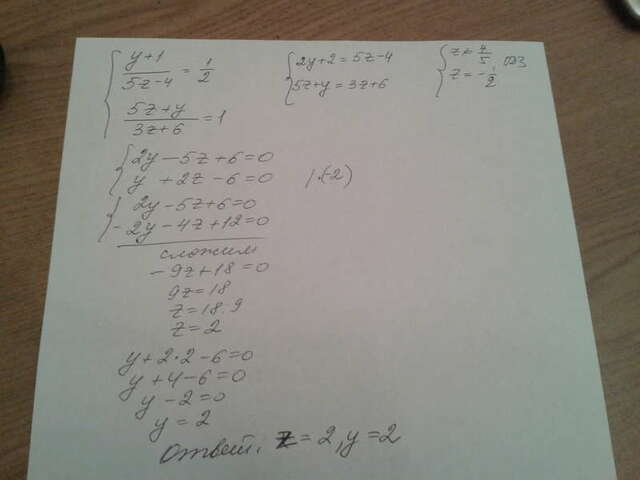 y+1/5z-4 = 1/2
5z+y/3z+6 = 1
2y+2=5z-4
5z+y=3z+6
z≠4/5 ОДЗ
z=-1/2
2y-5z+6=0
y+2z-6=0 |·(-2)
2y-5z+6=0
-2y-4z+12=0
сложим
-9z+18=0
9z=18
z=18:9
z=2
y+2·2-6=0
y+4-6=0
y-2=0
y=2
Ответ. z=2, y=2